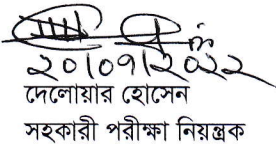 ২০।০৭।২০২২
দেলোয়ার হোসেন
সহকারী পরীক্ষা নিয়ন্ত্রক